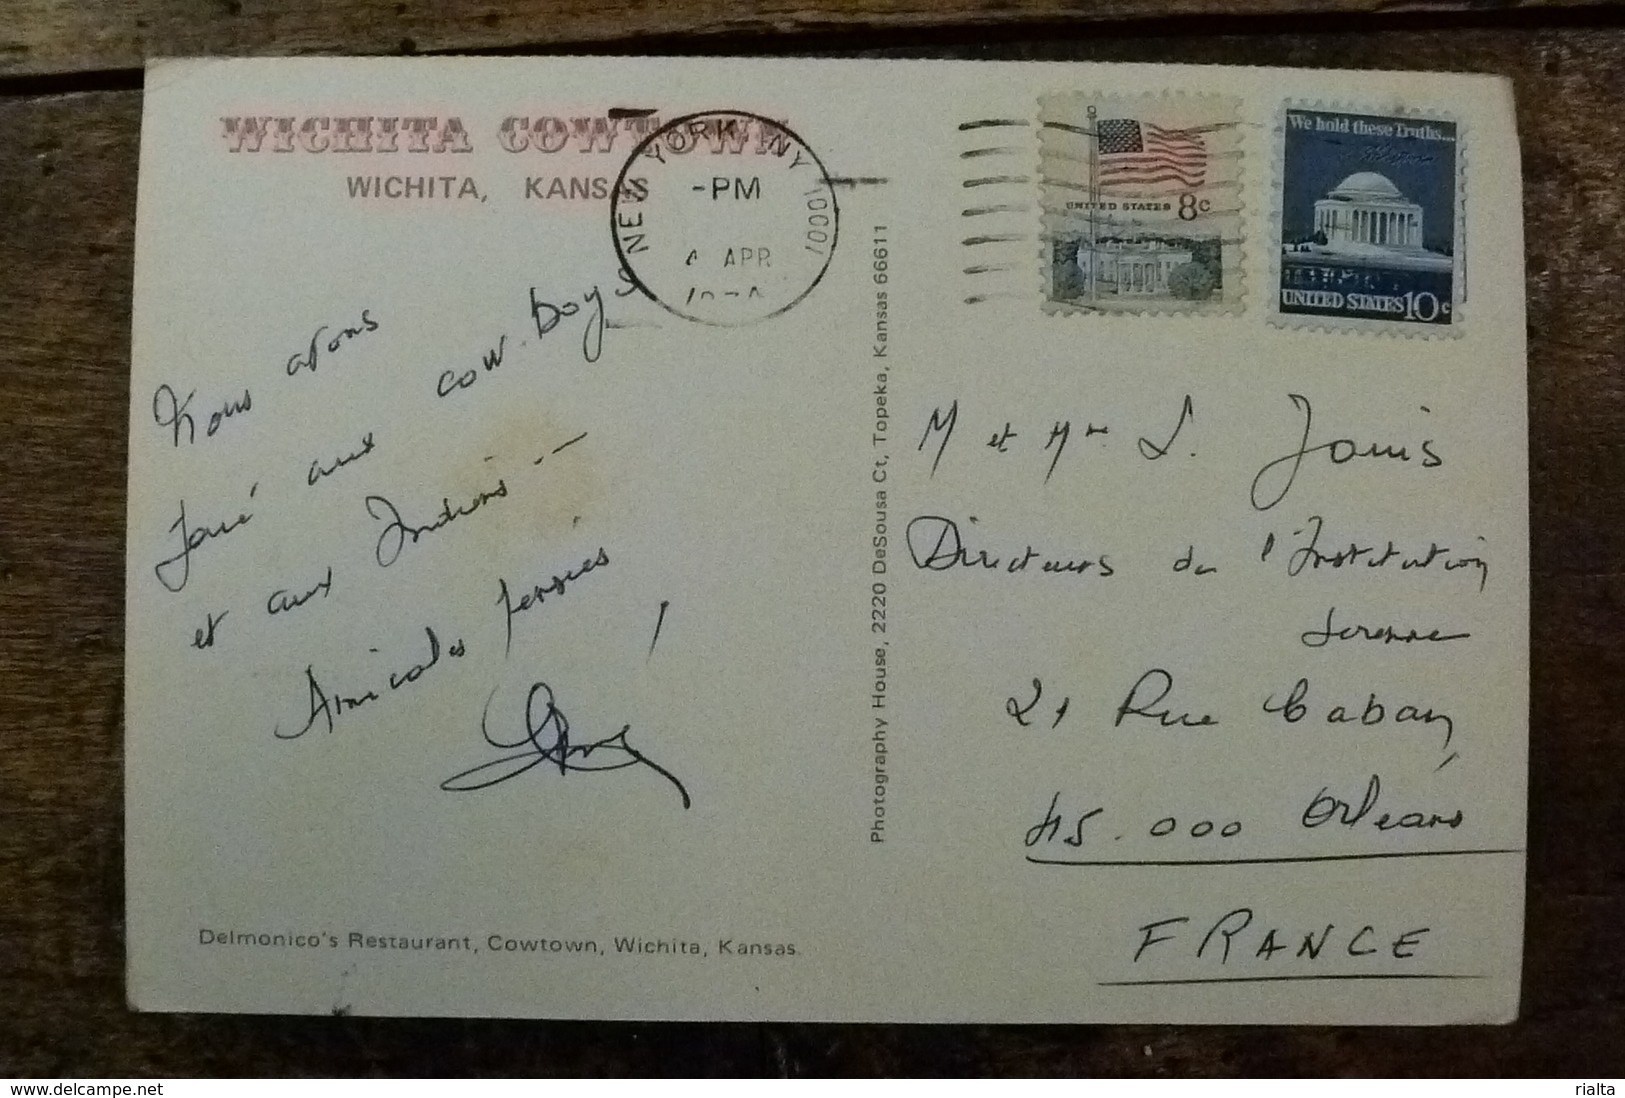 WICHITA COWTOWN
WICHITA, KANSAS
NEW YORK NY 10001
-PM
APR
UNITED STATES 8c
We hold these Truths...
UNITED STATES 10c
Nous avons
joué aux cow-boys
et aux Indiens...
Amicales pensées !
Delmonico's Restaurant, Cowtown, Wichita, Kansas.
Photography House, 2220 DeSousa Ct, Topeka, Kansas 66611
M et Mme L. Jouis
Directeurs de l'Institution
21 Rue Caban,
45.000 Orléans
FRANCE
www.delcampe.net
rialta